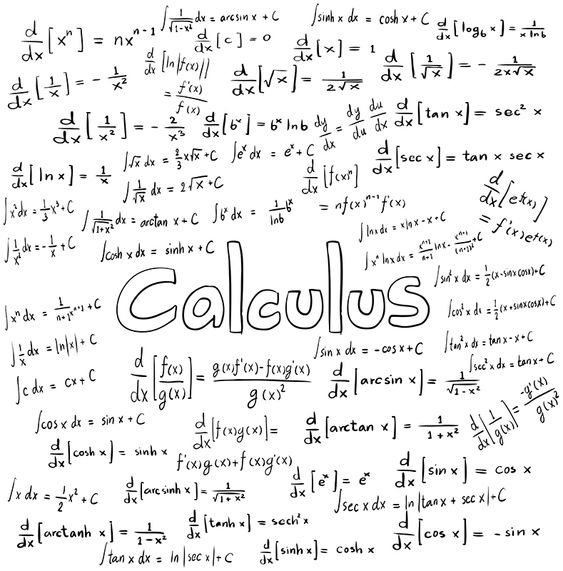 d/dx [xⁿ] = nxⁿ⁻¹
∫ 1/√(1-x²) dx = arcsin x + C
∫sinh x dx = cosh x + C
d/dx [log_b x] = 1/(x ln b)
d/dx [c] = 0
d/dx [x] = 1
d/dx [1/x] = - 1/x²
d/dx [ln|f(x)|] = f'(x)/f(x)
d/dx [√x] = 1/(2√x)
d/dx [1/√x] = - 1/(2x√x)
d/dx [1/x²] = - 2/x³
d/dx [bˣ] = bˣ ln b
dy/dx = dy/du du/dx
d/dx [tan x] = sec² x
d/dx [ln x] = 1/x
∫√x dx = 2/3 x√x + C
∫eˣ dx = eˣ + C
d/dx [sec x] = tan x sec x
∫ 1/√x dx = 2√x + C
d/dx [f(x)ⁿ] = nf(x)ⁿ⁻¹ f'(x)
d/dx [ef(x)] = f'(x) ef(x)
∫x² dx = 1/3 x³ + C
∫ 1/√(1+x²) dx = arctan x + C
∫bˣ dx = 1/(ln b) bˣ
∫ln x dx = x ln x - x + C
∫ 1/x² dx = - 1/x + C
∫cosh x dx = sinh x + C
∫xⁿ ln x dx = xⁿ⁺¹/(n+1) ln x - xⁿ⁺¹/(n+1)² + C
∫sin² x dx = 1/2 (x - sin x cos x) + C
Calculus
∫xⁿ dx = 1/(n+1) xⁿ⁺¹ + C
∫cos² x dx = 1/2 (x + sin x cos x) + C
∫ 1/x dx = ln|x| + C
∫sin x dx = - cos x + C
∫tan² x dx = tan x - x + C
∫sec² x dx = tan x + C
∫c dx = cx + C
d/dx [f(x)/g(x)] = (g(x)f'(x) - f(x)g'(x))/g(x)²
d/dx [arcsin x] = 1/√(1-x²)
∫cos x dx = sin x + C
d/dx [f(x)g(x)] = f'(x)g(x) + f(x)g'(x)
d/dx [arctan x] = 1/(1+x²)
d/dx [1/g(x)] = -g'(x)/g(x)²
d/dx [cosh x] = sinh x
d/dx [eˣ] = eˣ
d/dx [sin x] = cos x
∫x dx = 1/2 x² + C
d/dx [arcsinh x] = 1/√(1+x²)
∫sec x dx = ln|tan x + sec x| + C
d/dx [arctanh x] = 1/(1-x²)
d/dx [tanh x] = sech² x
d/dx [cos x] = - sin x
∫tan x dx = ln|sec x| + C
d/dx [sinh x] = cosh x